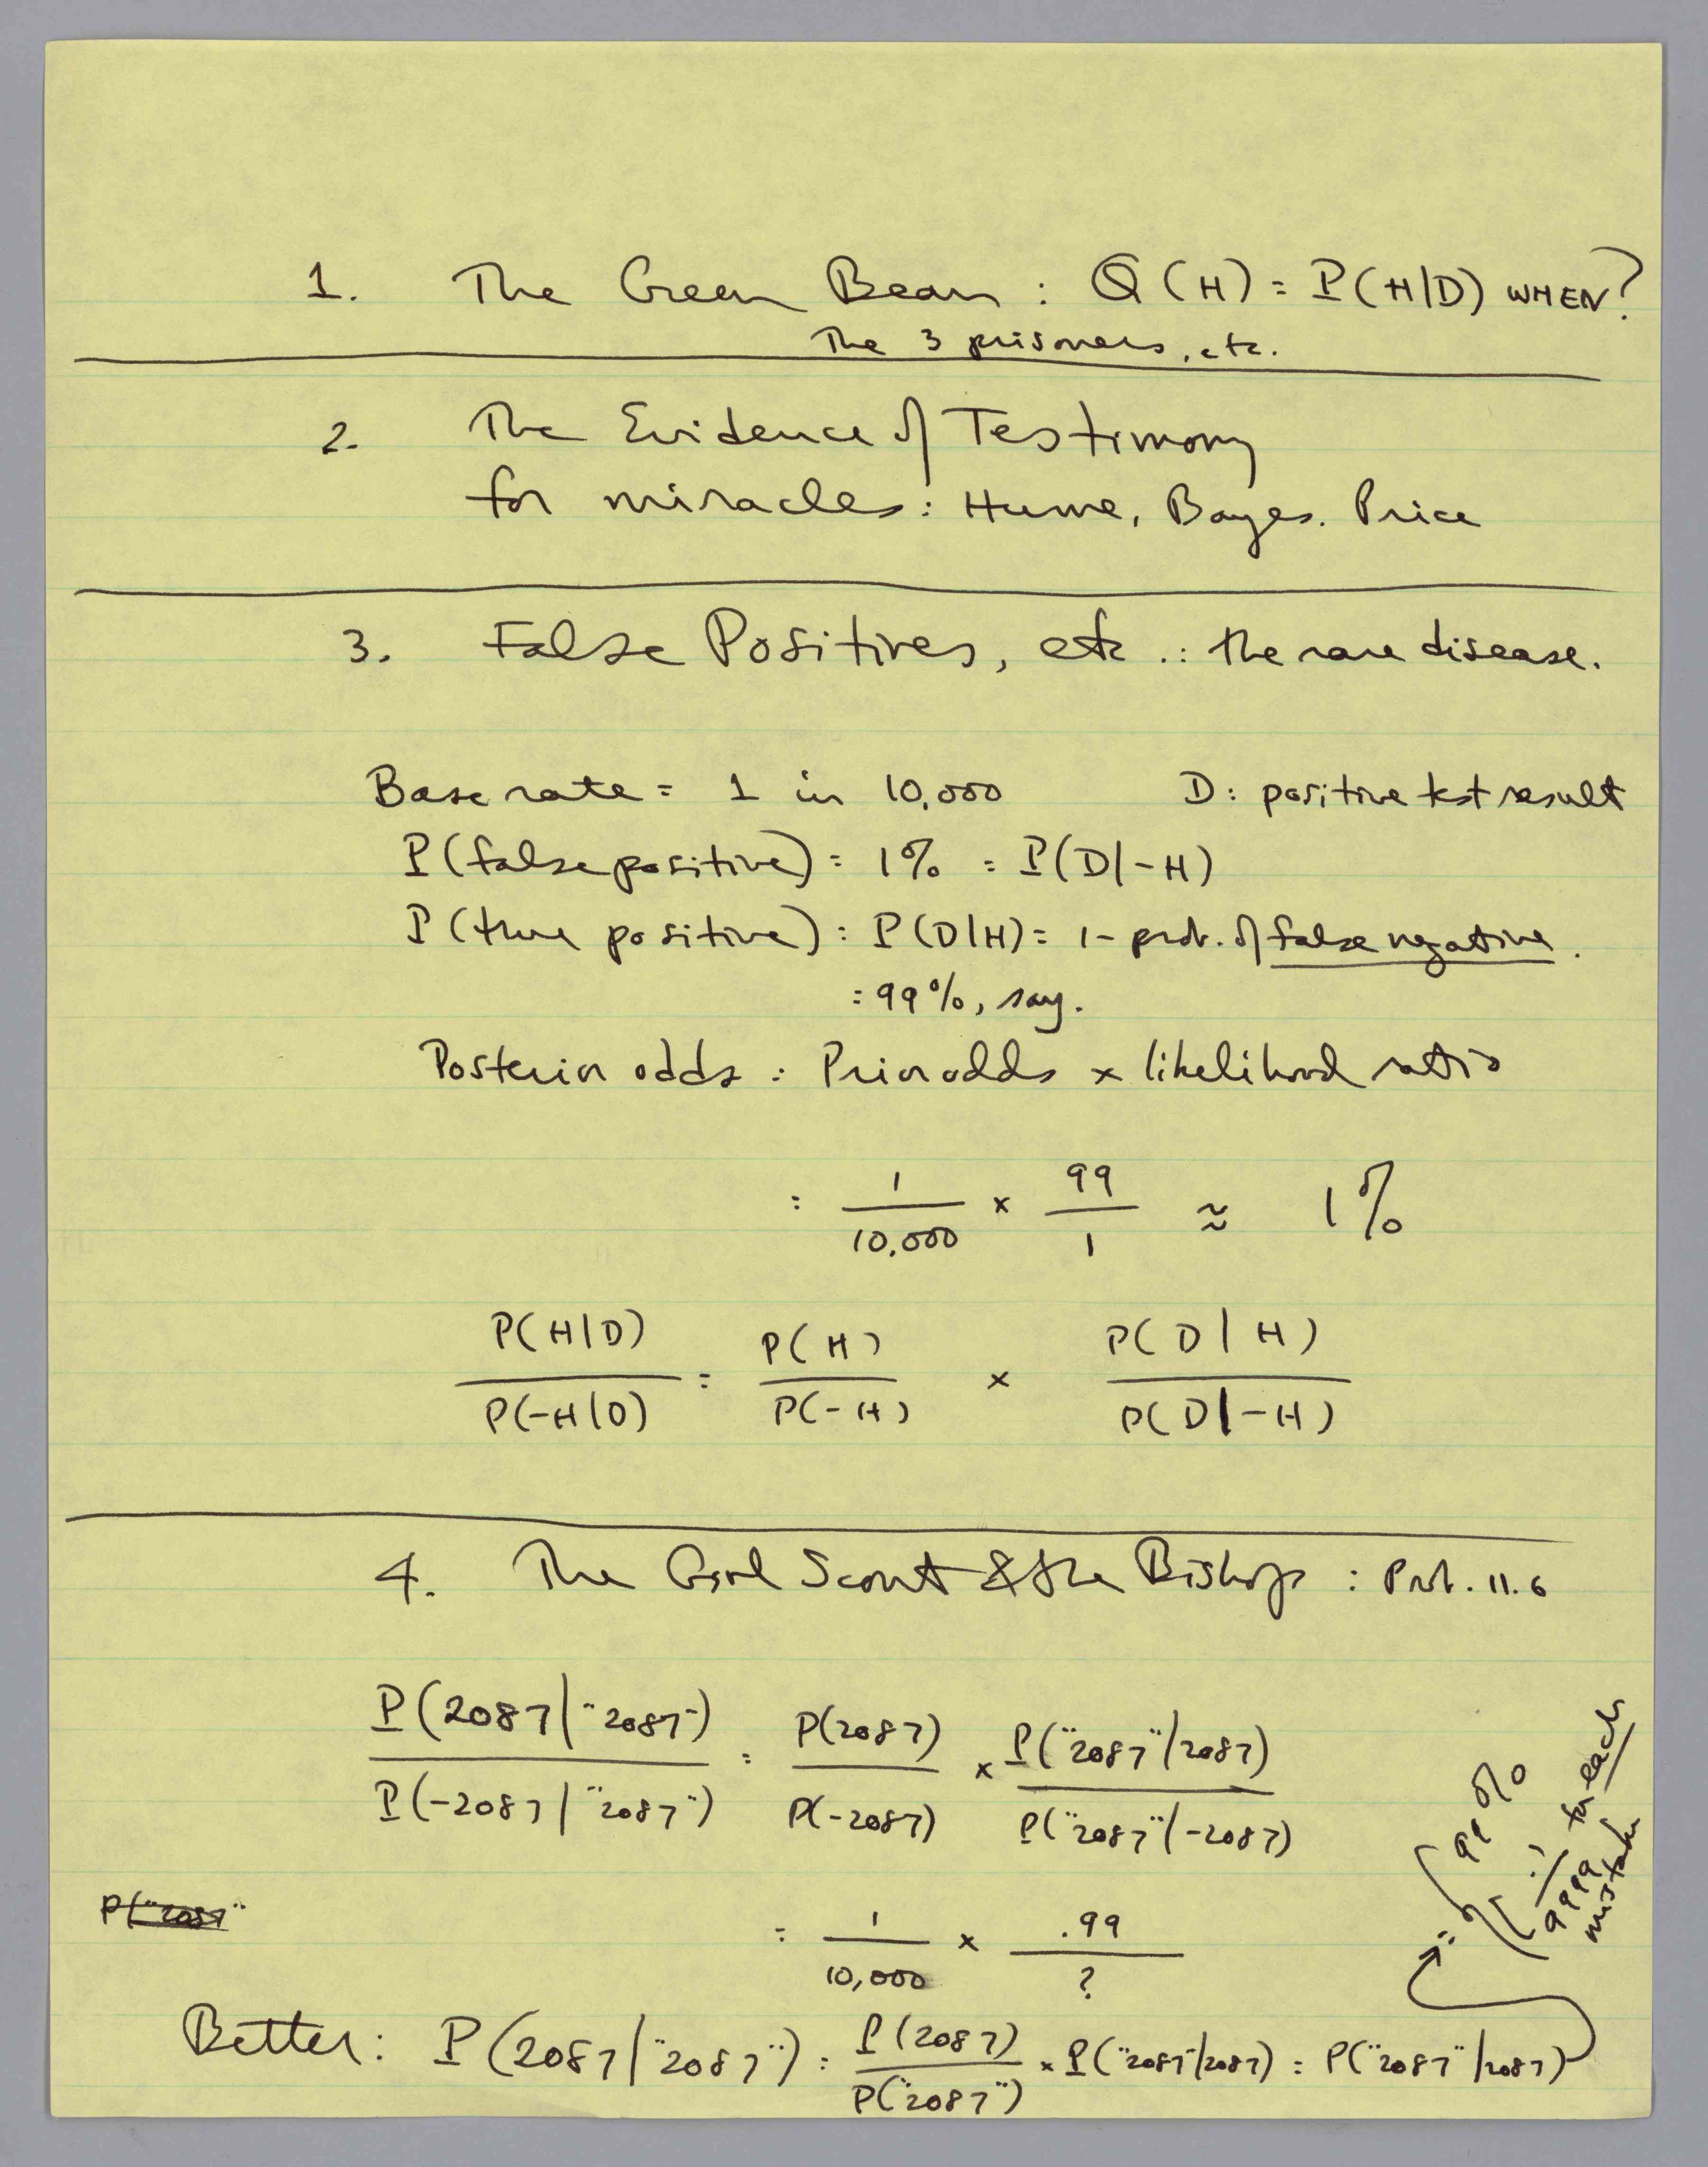 1. The Green Bean : Q(H) = P(H|D) WHEN?
The 3 prisoners, etc.
2. The Evidence of Testimony
for miracles: Hume, Bayes. Price
3. False Positives, etc.: the rare disease.
Base rate = 1 in 10,000 D: positive test result
P(false positive) = 1% = P(D|-H)
P(true positive) = P(D|H) = 1 - prob. of false negative.
= 99%, say.
Posterior odds = Prior odds × likelihood ratio
= 1/10,000 × 99/1 ≈ 1%
P(H|D)/P(-H|D) = P(H)/P(-H) × P(D|H)/P(D|-H)
4. The Girl Scout & the Bishop : Prob. 11.6
P(2087|"2087")/P(-2087|"2087") = P(2087)/P(-2087) × P("2087"|2087)/P("2087"|-2087)
P("2087"
= 1/10,000 × .99/?
Better: P(2087|"2087") = P(2087)/P("2087") × P("2087"|2087) = P("2087"|2087)
= 99%
.1/9999 for each
mistake